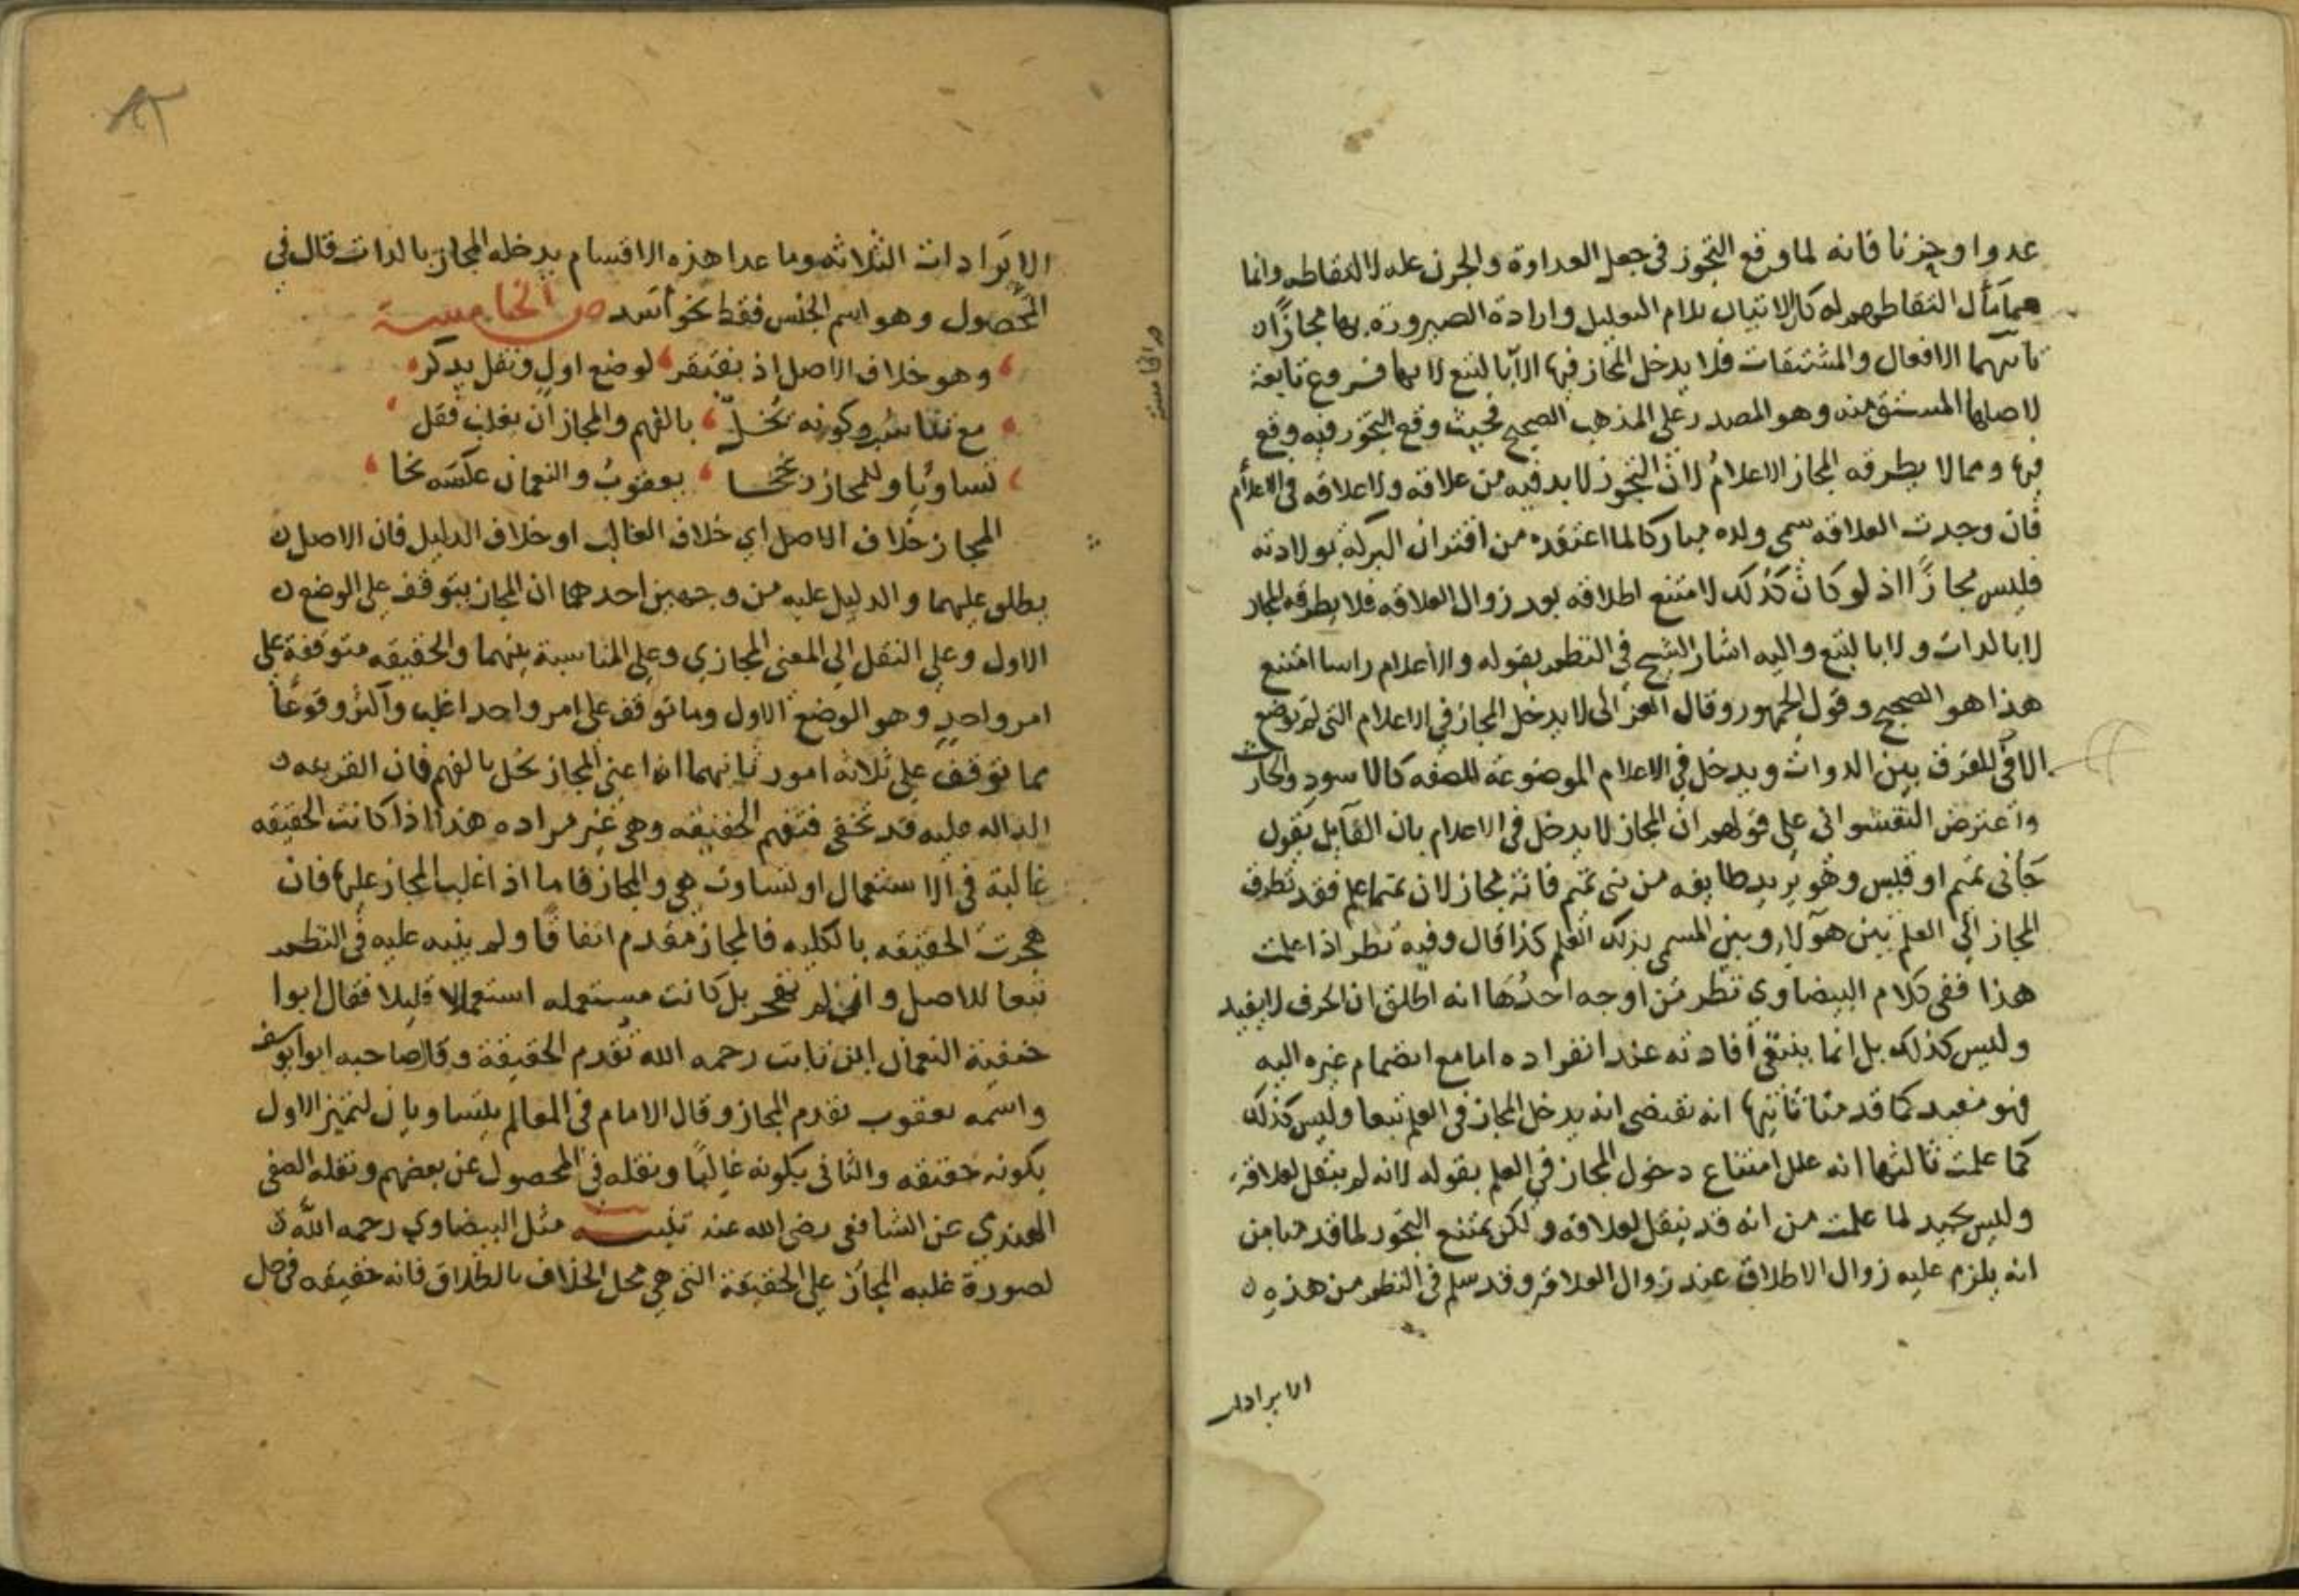 عدوا وحزنا فانه لما وقع التجوز في جعل العداوة والحزن عله لالتقاطه وانما
هما مآل التقاطهم له كان الاتيان بلام التعليل وارادة الصيرورة بها مجازًا ن
ثانيهما الافعال والمشتقات فلا يدخل المجاز فيها الا بالتبع لانها فروع تابعة
لاصلها المشتق منه وهو المصدر على المذهب الصحيح فحيث وقع التجوز فيه وقع
فيها ومما لا يطرقه المجاز الاعلام لان التجوز لا بد فيه من علاقه ولا علاقه في الاعلام
فان وجدت العلاقه كمن سمى ولده مباركا لما اعتقده من اقتران البركة بولادته
فليس مجازًا اذ لو كان كذلك لامتنع اطلاقه بعد زوال العلاقه فلا يطرقه المجاز
لا بالذات ولا بالتبع واليه اشار الشيخ في النظم بقوله والاعلام راسا امتنع
هذا هو الصحيح وقول الجمهور وقال الغزالى لا يدخل المجاز في الاعلام التى لم توضع
الا في للفرق بين الذوات ويدخل في الاعلام الموضوعة للصفه كالاسود والحارث
واعترض النقشوانى على قولهم ان المجاز لا يدخل في الاعلام بان القايل يقول
جانى تميم او قيس وهو يريد طايفه من بنى تميم فانه مجاز لان تميما علم فقد تطرق
المجاز الى العلم بين هولاء وبين المسمى بذلك العلم كذا قال وفيه نظر اذا علمت
هذا ففى كلام البيضاوي نظر من اوجه احدها انه اطلق ان الحرف لا يفيد
وليس كذلك بل انما ينتفى افادته عند انفراده اما مع انضمام غيره اليه
فهو مفيد كما قدمنا ثانيها انه تقتضى انه يدخل المجاز في العلم تبعا وليس كذلك
كما علمت ثالثها انه علل امتناع دخول المجاز في العلم بقوله لانه لم ينقل لعلاقة
وليس بجيد لما علمت من انه قد ينقل لعلاقه ولكن يمتنع التجوز لما قدمنا من
انه يلزم عليه زوال الاطلاق عند زوال العلاقه وقد سلم في النظم من هذه ن
الايرادات
الايرادات الثلاثه وما عدا هذه الاقسام يدخله المجاز بالذات قال في
المحصول وهو اسم الجنس فقط نحو اسد ص الخامسة
وهو خلاف الاصل اذ يفتقر لوضع اول ونقل يذكر
مع تناسب وكونه تخل بالفهم والمجاز ان يغلب فقل
تساويا وللمجاز رجحا يعقوب والنعمان عكسه نحا
المجاز خلاف الاصل اي خلاف الغالب او خلاف الدليل فان الاصل ن
يطلق عليهما والدليل عليه من وجهين احدهما ان المجاز يتوقف على الوضع ن
الاول وعلى النقل الى المعنى المجازي وعلى المناسبة بينهما والحقيقه متوقفة على
امر واحد وهو الوضع الاول وما توقف على امر واحد اغلب واكثر وقوعًا
مما توقف على ثلاثه امور ثانيهما انه اعنى المجاز تخل بالفهم فان القرينه ن
الداله عليه قد تخفى فتفهم الحقيقه وهى غير مراده هذا اذا كانت الحقيقه
غالبة في الاستعمال او تساوت هي والمجاز فاما اذا غلب المجاز عليها فان
هجرت الحقيقه بالكليه فالمجاز مقدم اتفاقا ولم ينبه عليه في النظم
تبعا للاصل وان لم تهجر بل كانت مستعمله استعمالا قليلا فقال ابوا
حنفية النعمان ابن ثابت رحمه الله تقدم الحقيقة وقال صاحبه ابوا يوسف
واسمه يعقوب يقدم المجاز وقال الامام في المعالم يتساويان لتميز الاول
بكونه حقيقه والثانى بكونه غالبًا ونقله في المحصول عن بعضهم ونقله الصفى
الهندي عن الشافعى رضى الله عنه تنبيـــه مثل البيضاوي رحمه الله ن
لصورة غلبه المجاز على الحقيقة التى هي محل الخلاف بالطلاق فانه حقيقه في حل